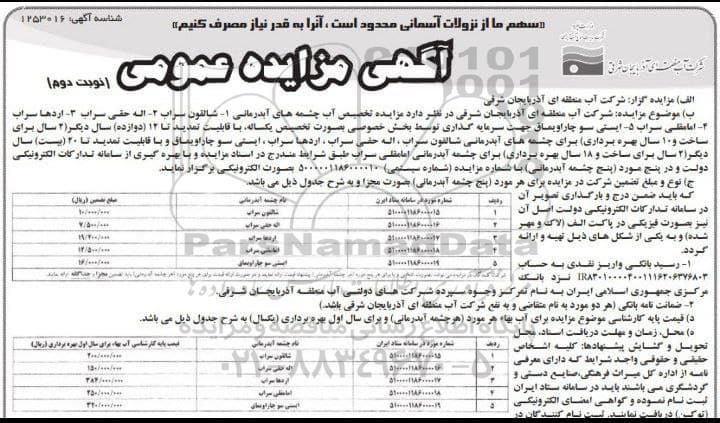 شناسه آگهی: ۱۲۵۳۰۱۶
«سهم ما از نزولات آسمانی محدود است ، آنرا به قدر نیاز مصرف کنیم»
آگهی مزایده عمومی
(نوبت دوم)
شرکت آب منطقه ای آذربایجان شرقی
الف) مزایده گزار: شرکت آب منطقه ای آذربایجان شرقی
ب) موضوع مزایده: شرکت آب منطقه ای آذربایجان شرقی در نظر دارد مزایده تخصیص آب چشمه های آبدرمانی ۱- شالقون سراب ۲- اله حقی سراب ۳- اردها سراب
۴- امامقلی سراب ۵- ایستی سو چاراویماق جهت سرمایه گذاری توسط بخش خصوصی بصورت تخصیص یکساله، با قابلیت تمدید تا ۱۲ (دوازده) سال دیگر (۲ سال برای
ساخت و ۱۰ سال بهره برداری) برای چشمه های آبدرمانی شالقون سراب ، اله حقی سراب ، اردها سراب ، ایستی سو چاراویماق و با قابلیت تمدید تا ۲۰ (بیست) سال
دیگر (۲ سال برای ساخت و ۱۸ سال بهره برداری) برای چشمه آبدرمانی امامقلی سراب طبق شرایط مندرج در اسناد مزایده و با بهره گیری از سامانه تدارکات الکترونیکی
دولت و در پنج مورد (پنج چشمه آبدرمانی) با شماره مزایده (شماره سیستمی) بصورت الکترونیکی برگزار نماید.
ج) نوع و مبلغ تضمین شرکت در مزایده برای هر مورد (پنج چشمه آبدرمانی) بصورت مجزا و به شرح جدول ذیل می باشد.
ردیف شماره مورد در سامانه ستاد ایران نام چشمه آبدرمانی مبلغ تضمین (ریال)
۱ ۵۱۰۰۰۰۱۱۸۶۰۰۰۰۱۵ شالقون سراب ۱۰/۰۰۰/۰۰۰
۲ ۵۱۰۰۰۰۱۱۸۶۰۰۰۰۱۶ اله حقی سراب ۷/۵۰۰/۰۰۰
۳ ۵۱۰۰۰۰۱۱۸۶۰۰۰۰۱۷ اردها سراب ۱۹/۲۰۰/۰۰۰
۴ ۵۱۰۰۰۰۱۱۸۶۰۰۰۰۱۸ امامقلی سراب ۱۲/۵۰۰/۰۰۰
۵ ۵۱۰۰۰۰۱۱۸۶۰۰۰۰۱۹ ایستی سو چاراویماق ۱۶/۰۰۰/۰۰۰
که باید ضمن درج و بارگذاری تصویر آن
در سامانه تدارکات الکترونیکی دولت اصل آن
نیز بصورت فیزیکی در پاکت الف (لاک و مهر
شده) و به یکی از شکل های ذیل تهیه و ارائه
گردد.
۱- رسید بانکی واریز نقدی به حساب
نزد بانک
مرکزی جمهوری اسلامی ایران به نام تمرکز وجوه سپرده شرکت های دولتی آب منطقه آذربایجان شرقی.
۲- ضمانت نامه بانکی (هر دو مورد به نام متقاضی و به نفع شرکت آب منطقه ای آذربایجان شرقی باشد.
د) قیمت پایه کارشناسی موضوع مزایده برای آب بهاء هر مورد (هر چشمه آبدرمانی) و برای سال اول بهره برداری (یکسال) به شرح جدول ذیل می باشد.
ردیف شماره مورد در سامانه ستاد ایران نام چشمه آبدرمانی قیمت پایه کارشناسی آب بهاء برای سال اول بهره برداری (ریال)
۱ ۵۱۰۰۰۰۱۱۸۶۰۰۰۰۱۵ شالقون سراب ۲۰۰/۰۰۰/۰۰۰
۲ ۵۱۰۰۰۰۱۱۸۶۰۰۰۰۱۶ اله حقی سراب ۱۵۰/۰۰۰/۰۰۰
۳ ۵۱۰۰۰۰۱۱۸۶۰۰۰۰۱۷ اردها سراب ۳۸۴/۰۰۰/۰۰۰
۴ ۵۱۰۰۰۰۱۱۸۶۰۰۰۰۱۸ امامقلی سراب ۲۵۰/۰۰۰/۰۰۰
۵ ۵۱۰۰۰۰۱۱۸۶۰۰۰۰۱۹ ایستی سو چاراویماق ۳۲۰/۰۰۰/۰۰۰
ه) محل، زمان و مهلت دریافت اسناد، محل
تحویل و گشایش پیشنهادها: کلیه اشخاص
حقیقی و حقوقی واجد شرایط که دارای معرفی
نامه از اداره کل میراث فرهنگی، صنایع دستی و
گردشگری می باشند باید در سامانه ستاد ایران
ثبت نام نموده و گواهی امضای الکترونیکی
(توکن) دریافت نمایند. ثبت نام کنندگان در
ParsNamadData
پایگاه اطلاع رسانی مناقصه و مزایده